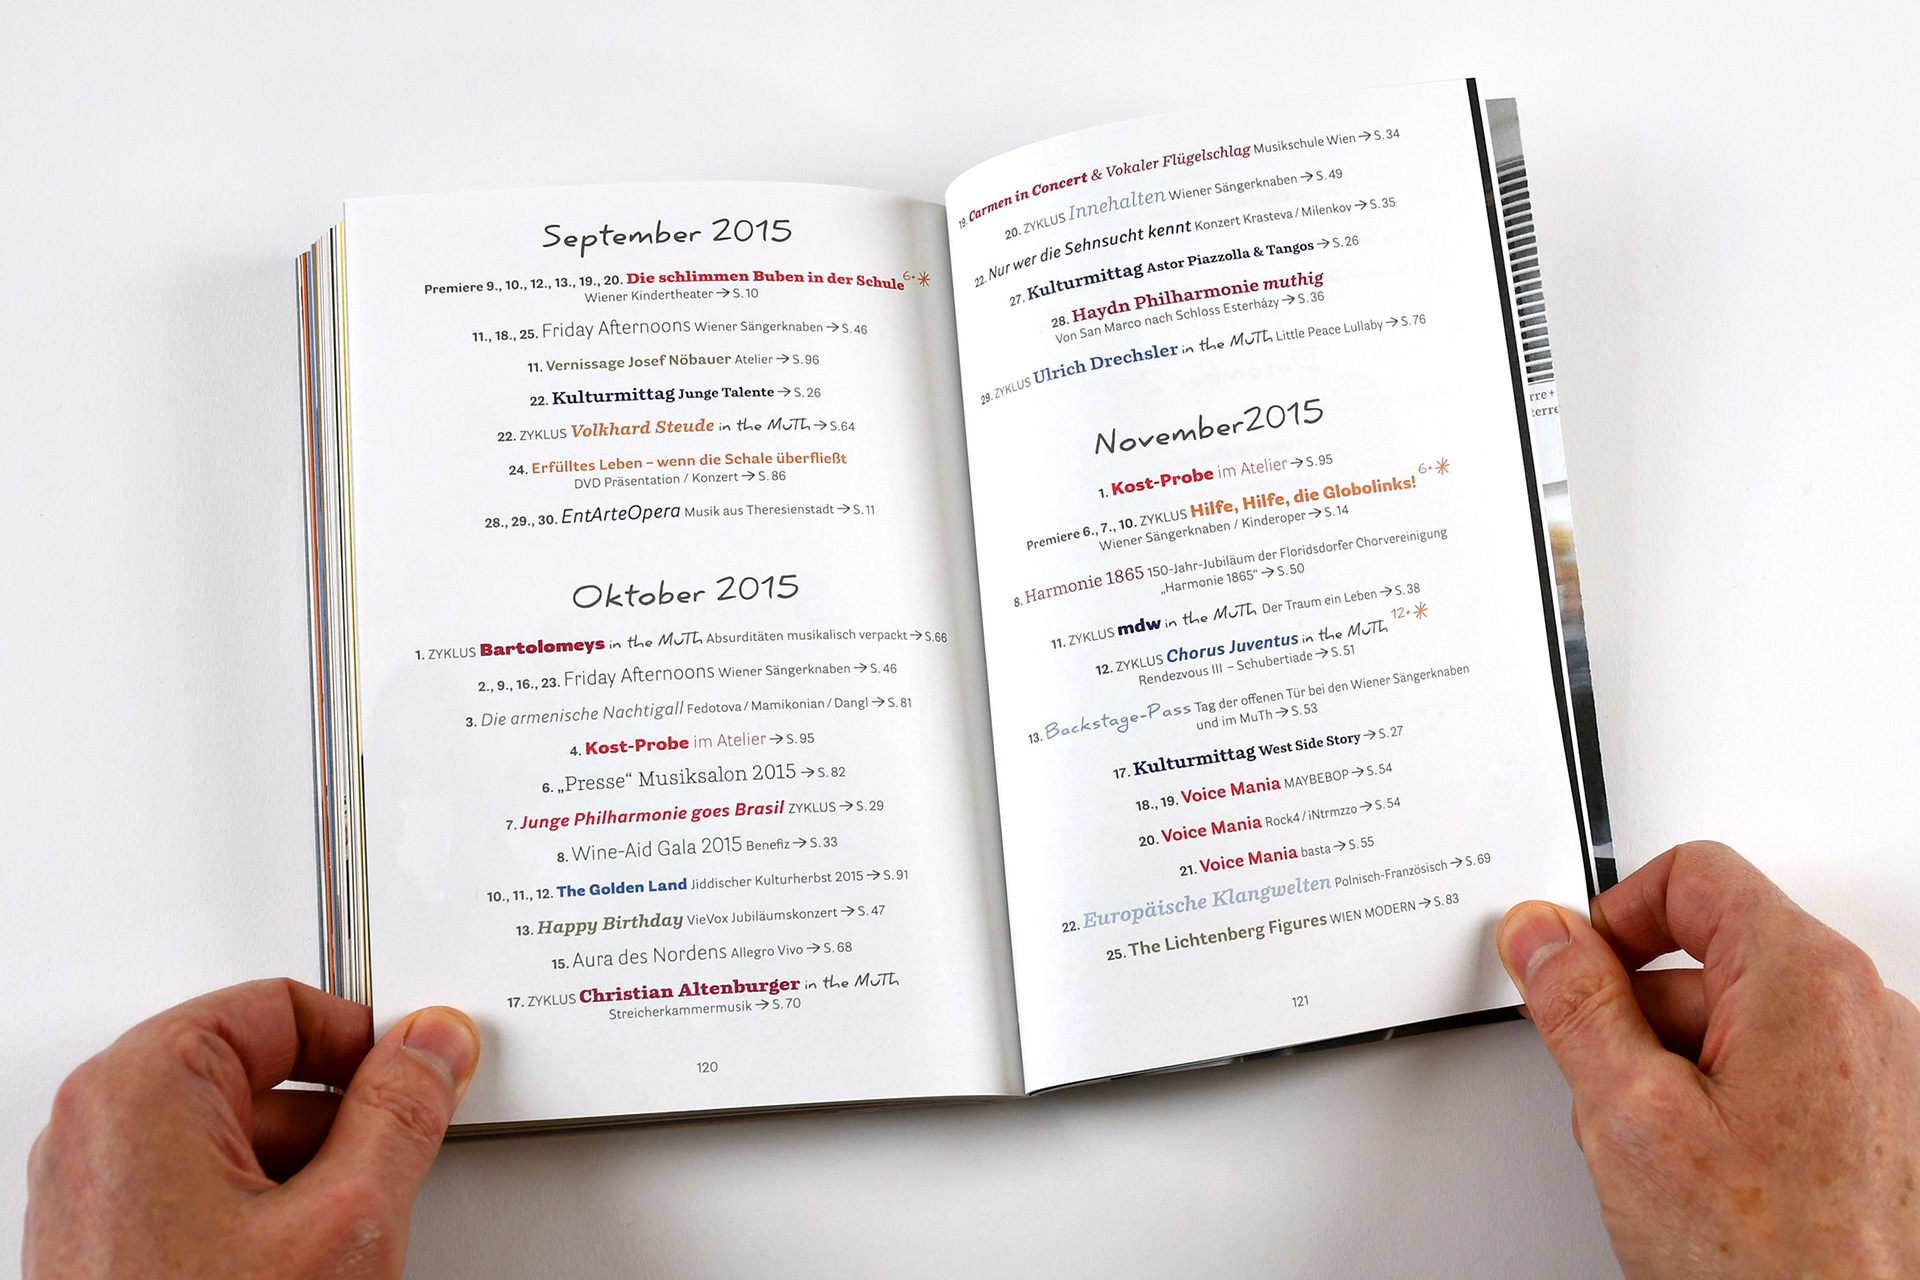 September 2015
Premiere 9., 10., 12., 13., 19., 20. Die schlimmen Buben in der Schule 6+*
Wiener Kindertheater → S. 10
11., 18., 25. Friday Afternoons Wiener Sängerknaben → S. 46
11. Vernissage Josef Nöbauer Atelier → S. 96
22. Kulturmittag Junge Talente → S. 26
22. ZYKLUS Volkhard Steude in the MuTh → S. 64
24. Erfülltes Leben – wenn die Schale überfließt
DVD Präsentation / Konzert → S. 86
28., 29., 30. EntArteOpera Musik aus Theresienstadt → S. 11
Oktober 2015
1. ZYKLUS Bartolomeys in the MuTh Absurditäten musikalisch verpackt → S. 66
2., 9., 16., 23. Friday Afternoons Wiener Sängerknaben → S. 46
3. Die armenische Nachtigall Fedotova / Mamikonian / Dangl → S. 81
4. Kost-Probe im Atelier → S. 95
6. „Presse“ Musiksalon 2015 → S. 82
7. Junge Philharmonie goes Brasil ZYKLUS → S. 29
8. Wine-Aid Gala 2015 Benefiz → S. 33
10., 11., 12. The Golden Land Jiddischer Kulturherbst 2015 → S. 91
13. Happy Birthday VieVox Jubiläumskonzert → S. 47
15. Aura des Nordens Allegro Vivo → S. 68
17. ZYKLUS Christian Altenburger in the MuTh
Streicherkammermusik → S. 70
120
19. Carmen in Concert & Vokaler Flügelschlag Musikschule Wien → S. 34
20. ZYKLUS Innehalten Wiener Sängerknaben → S. 49
22. Nur wer die Sehnsucht kennt Konzert Krasteva / Milenkov → S. 35
27. Kulturmittag Astor Piazzolla & Tangos → S. 26
28. Haydn Philharmonie muthig
Von San Marco nach Schloss Esterházy → S. 36
29. ZYKLUS Ulrich Drechsler in the MuTh Little Peace Lullaby → S. 76
November 2015
1. Kost-Probe im Atelier → S. 95
Premiere 6., 7., 10. ZYKLUS Hilfe, Hilfe, die Globolinks! 6+*
Wiener Sängerknaben / Kinderoper → S. 14
8. Harmonie 1865 150-Jahr-Jubiläum der Floridsdorfer Chorvereinigung
„Harmonie 1865“ → S. 50
11. ZYKLUS mdw in the MuTh Der Traum ein Leben → S. 38
12. ZYKLUS Chorus Juventus in the MuTh 12+*
Rendezvous III – Schubertiade → S. 51
13. Backstage-Pass Tag der offenen Tür bei den Wiener Sängerknaben
und im MuTh → S. 53
17. Kulturmittag West Side Story → S. 27
18., 19. Voice Mania MAYBEBOP → S. 54
20. Voice Mania Rock4 / iNtrmzzo → S. 54
21. Voice Mania basta → S. 55
22. Europäische Klangwelten Polnisch-Französisch → S. 69
25. The Lichtenberg Figures WIEN MODERN → S. 83
121